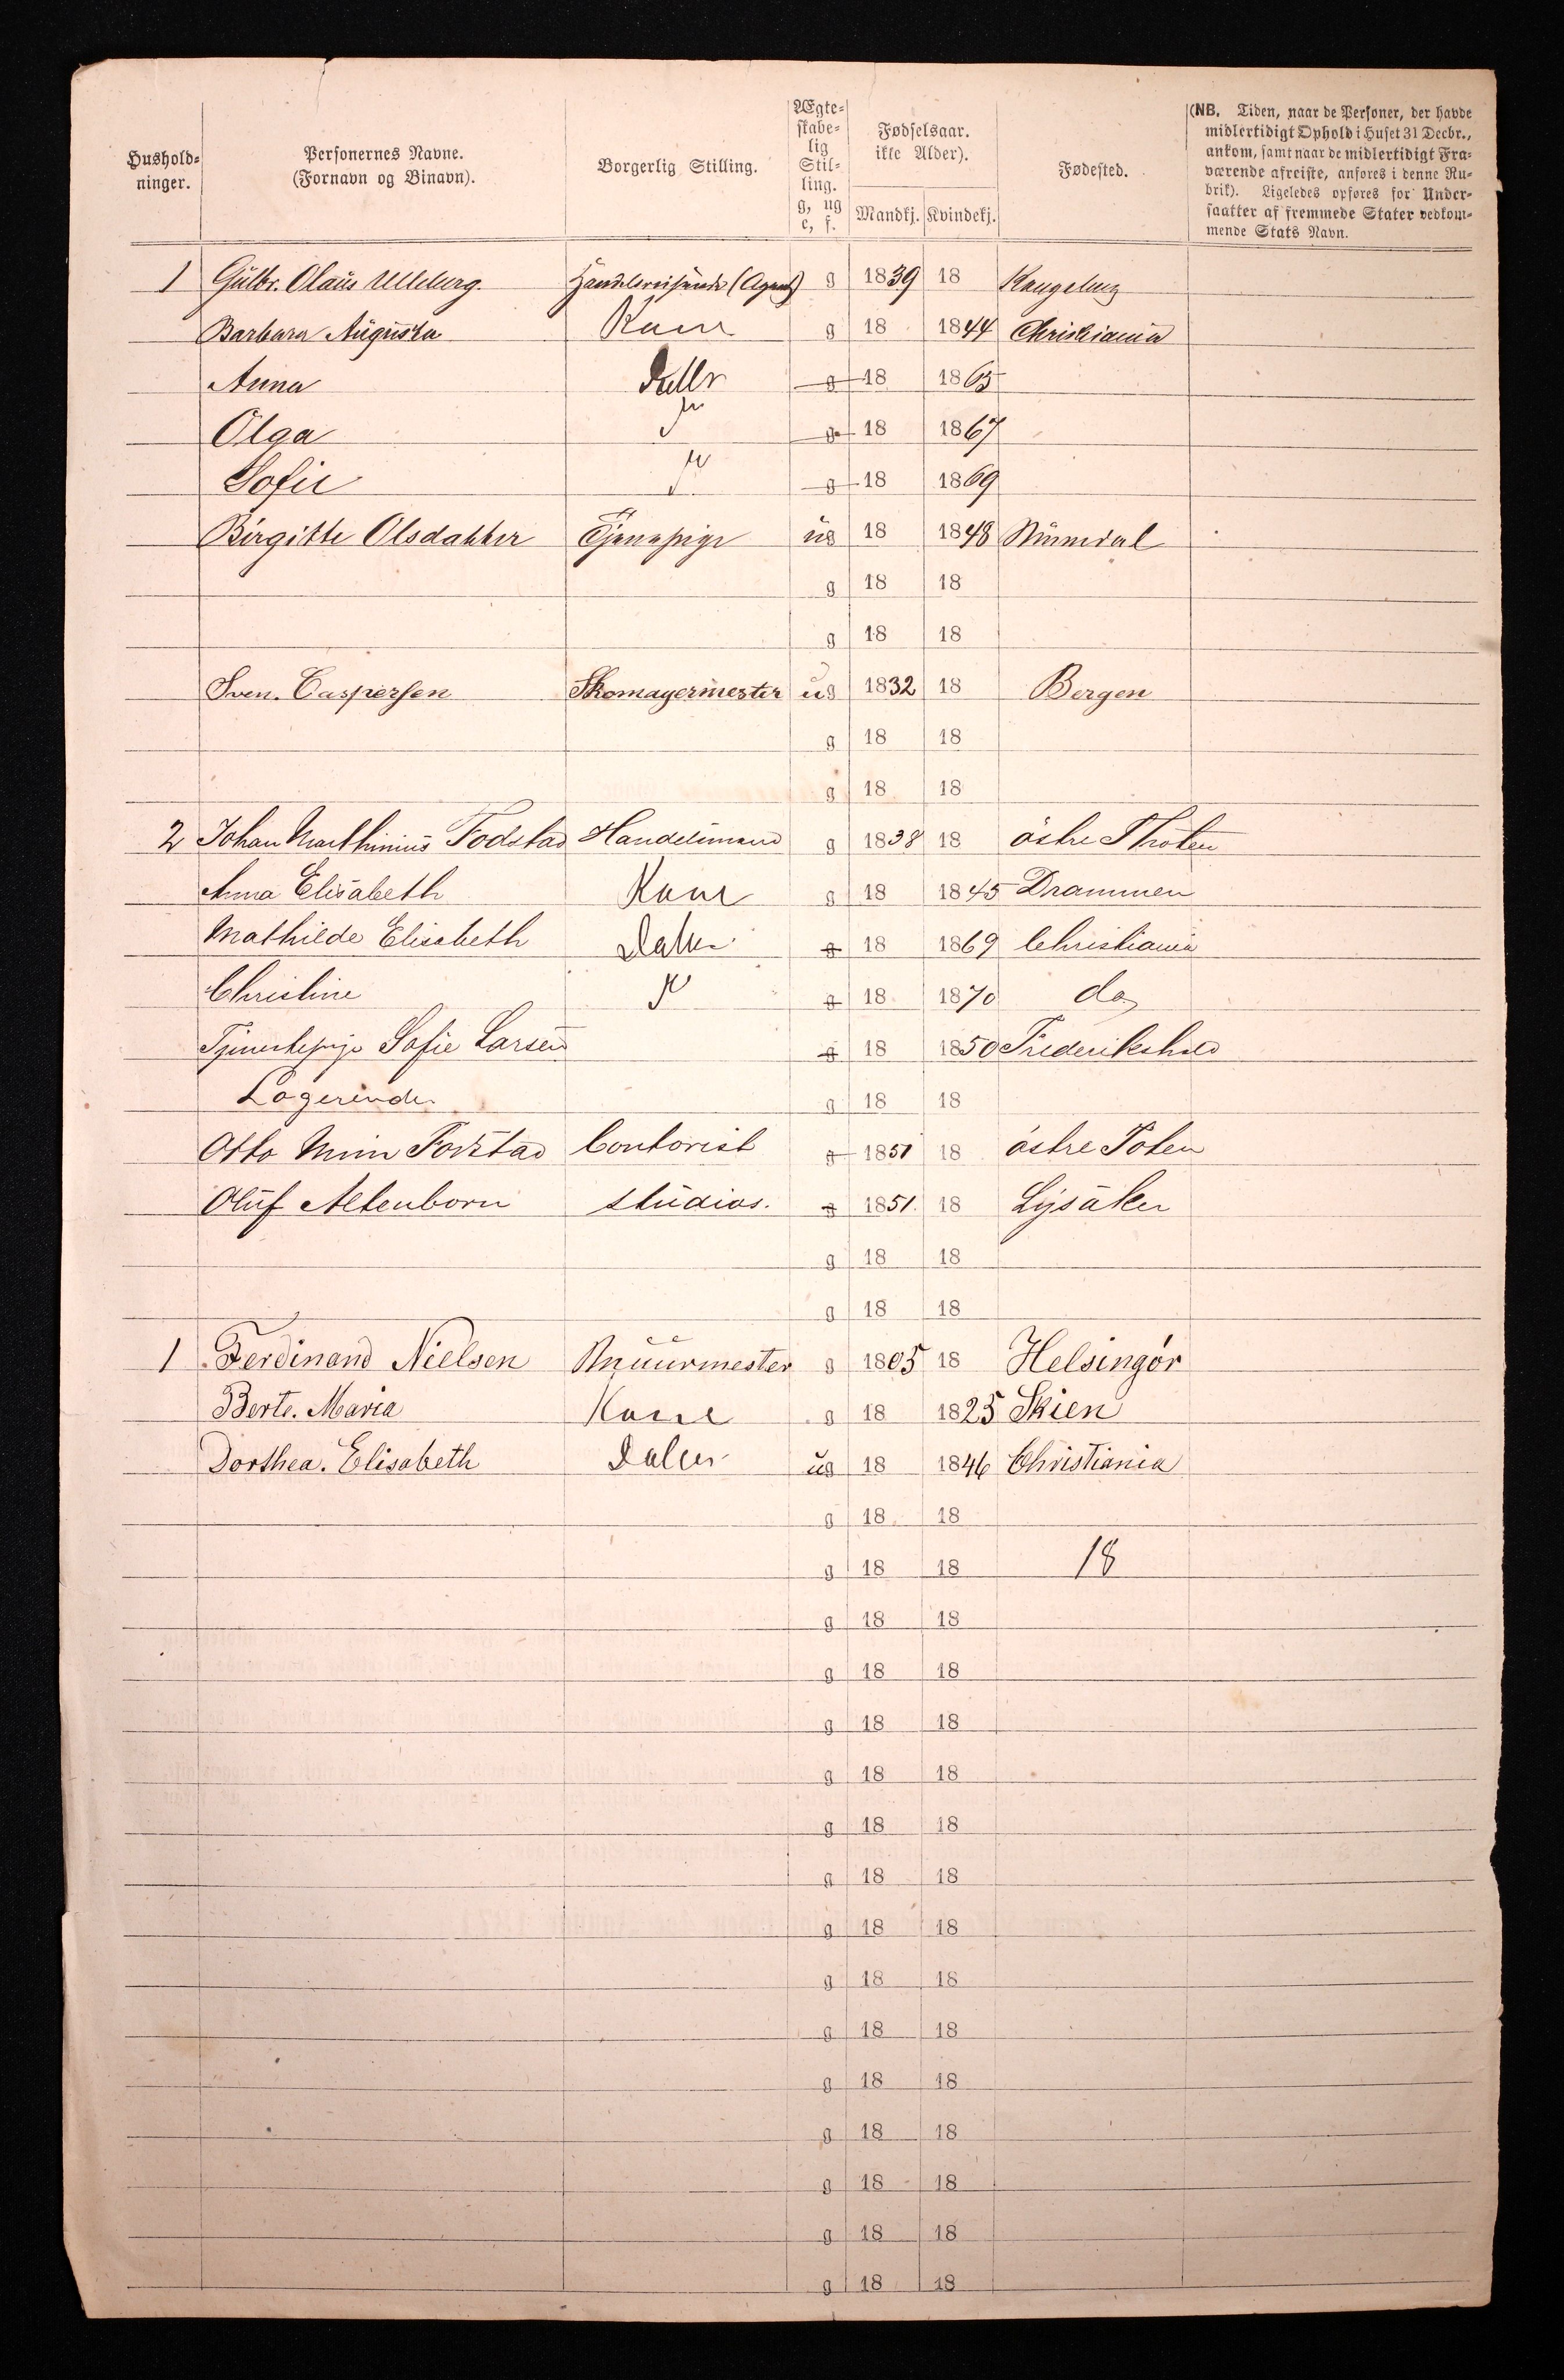 Hushold-
ninger.
Personernes Navne.
(Fornavn og Binavn).
Borgerlig Stilling.
Ægte-
skabe-
lig
Stil-
ling.
g, ug
e, f.
Fødselsaar.
ikke Alder).
Mandkj. Kvindekj.
Fødested.
(NB. Tiden, naar de Personer, der havde
midlertidigt Ophold i Huset 31 Decbr.,
ankom, samt naar de midlertidigt Fra-
værende afreiste, anføres i denne Ru-
brik). Ligeledes opføres for Under-
saatter af fremmede Stater vedkom-
mende Stats Navn.
1 Gulbr. Olaus Ulleberg. Handelsreisende (Agent) g 1839 18
Barbara Augusta Kone g 18 1844 Christiania
Anna g 18 1865
Olga g 18 1867
Sofie g 18 1869
Birgitte Olsdatter Tjenepige ug 18 1848
g 18 18
g 18 18
Sven. Caspersen Skomagermester ug 1832 18 Bergen
g 18 18
g 18 18
2 Johan Marthinius Fodstad Handelsmand g 1838 18 östre Thoten
Anna Elisabeth Kone g 18 1845 Drammen
Mathilde Elisabeth Dater g 18 1869 Christiania
Christine g 18 1870 do
Tjenestepige Sofie Larsen g 18 1850 Frederikshald
Logerende g 18 18
Otto Fodstad Contorist g 1851 18 östre Toten
Oluf Altenborn studios. g 1851. 18 Lysaker
g 18 18
g 18 18
1 Ferdinand Nielsen Muurmester g 1805 18 Helsingör
Berte. Maria Kone g 18 1825 Skien
Dorthea. Elisabeth Dater ug 18 1846 Christiania
g 18 18
g 18 18 18
g 18 18
g 18 18
g 18 18
g 18 18
g 18 18
g 18 18
g 18 18
g 18 18
g 18 18
g 18 18
g 18 18
g 18 18
g 18 18
g 18 18